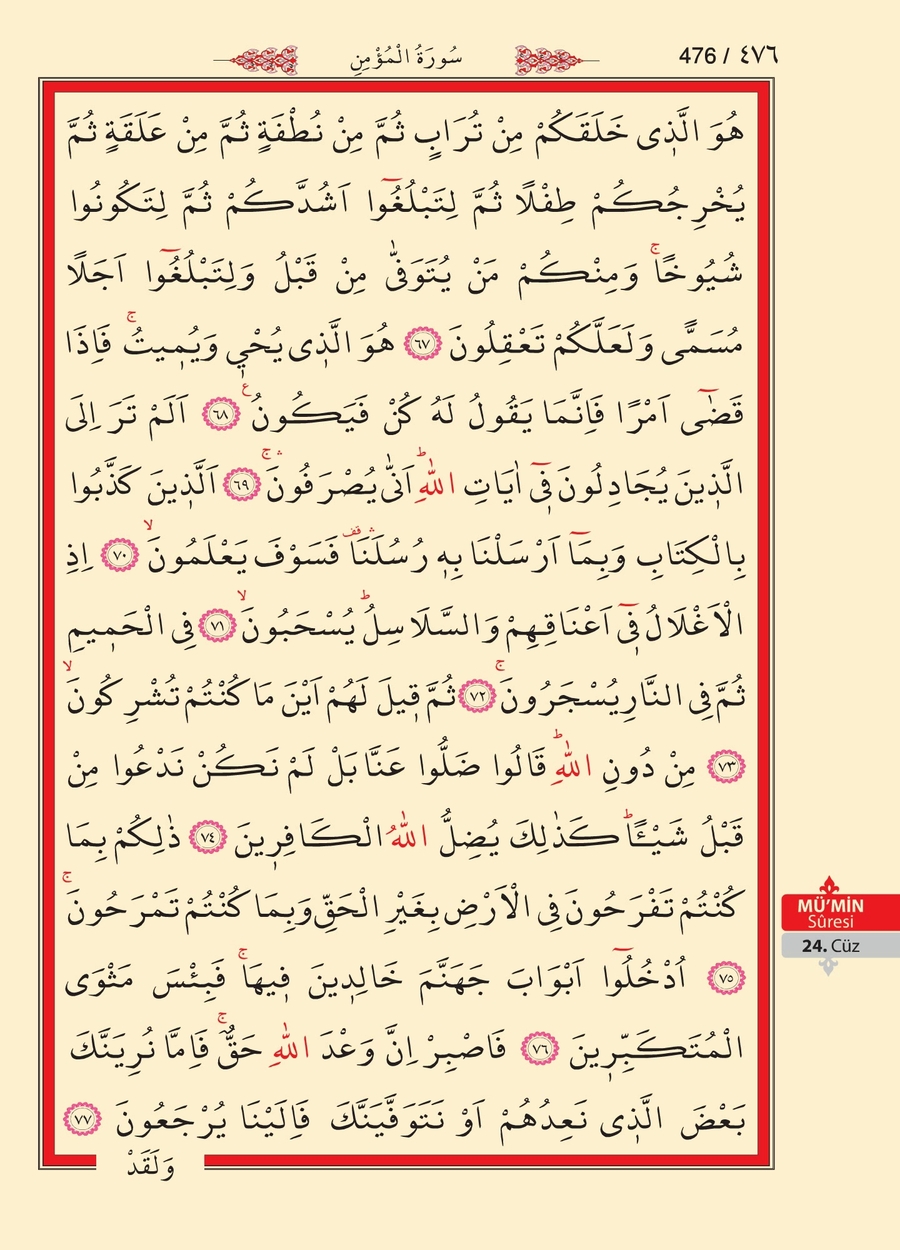 سُورَةُ الْمُؤْمِنِ
476 / ٤٧٦
هُوَ الَّذ۪ى خَلَقَكُمْ مِنْ تُرَابٍ ثُمَّ مِنْ نُطْفَةٍ ثُمَّ مِنْ عَلَقَةٍ ثُمَّ
يُخْرِجُكُمْ طِفْلًا ثُمَّ لِتَبْلُغُٓوا اَشُدَّكُمْ ثُمَّ لِتَكُونُوا
شُيُوخًاۚ وَمِنْكُمْ مَنْ يُتَوَفّٰى مِنْ قَبْلُ وَلِتَبْلُغُٓوا اَجَلًا
مُسَمًّى وَلَعَلَّكُمْ تَعْقِلُونَ ﴿٦٧﴾ هُوَ الَّذ۪ى يُحْي۪ وَيُم۪يتُۚ فَاِذَا
قَضٰٓى اَمْرًا فَاِنَّمَا يَقُولُ لَهُ كُنْ فَيَكُونُ ع ﴿٦٨﴾ اَلَمْ تَرَ اِلَى
الَّذ۪ينَ يُجَادِلُونَ ف۪ٓى اٰيَاتِ اللّٰهِۜ اَنّٰى يُصْرَفُونَۚۛ ﴿٦٩﴾ اَلَّذ۪ينَ كَذَّبُوا
بِالْكِتَابِ وَبِمَٓا اَرْسَلْنَا بِه۪ رُسُلَنَا۠ۛ فَسَوْفَ يَعْلَمُونَۙ ﴿٧٠﴾ اِذِ
الْاَغْلَالُ ف۪ٓى اَعْنَاقِهِمْ وَالسَّلَاسِلُۜ يُسْحَبُونَۙ ﴿٧١﴾ فِى الْحَم۪يمِ
ثُمَّ فِى النَّارِ يُسْجَرُونَۚ ﴿٧٢﴾ ثُمَّ ق۪يلَ لَهُمْ اَيْنَ مَا كُنْتُمْ تُشْرِكُونَۙ
﴿٧٣﴾ مِنْ دُونِ اللّٰهِۜ قَالُوا ضَلُّوا عَنَّا بَلْ لَمْ نَكُنْ نَدْعُوا مِنْ
قَبْلُ شَيْـًٔاۜ كَذٰلِكَ يُضِلُّ اللّٰهُ الْكَافِر۪ينَ ﴿٧٤﴾ ذٰلِكُمْ بِمَا
كُنْتُمْ تَفْرَحُونَ فِى الْاَرْضِ بِغَيْرِ الْحَقِّ وَبِمَا كُنْتُمْ تَمْرَحُونَۚ
﴿٧٥﴾ اُدْخُلُٓوا اَبْوَابَ جَهَنَّمَ خَالِد۪ينَ ف۪يهَاۚ فَبِئْسَ مَثْوَى
الْمُتَكَبِّر۪ينَ ﴿٧٦﴾ فَاصْبِرْ اِنَّ وَعْدَ اللّٰهِ حَقٌّۚ فَاِمَّا نُرِيَنَّكَ
بَعْضَ الَّذ۪ى نَعِدُهُمْ اَوْ نَتَوَفَّيَنَّكَ فَاِلَيْنَا يُرْجَعُونَ ﴿٧٧﴾
وَلَقَدْ
MÜ'MİN
Sûresi
24. Cüz